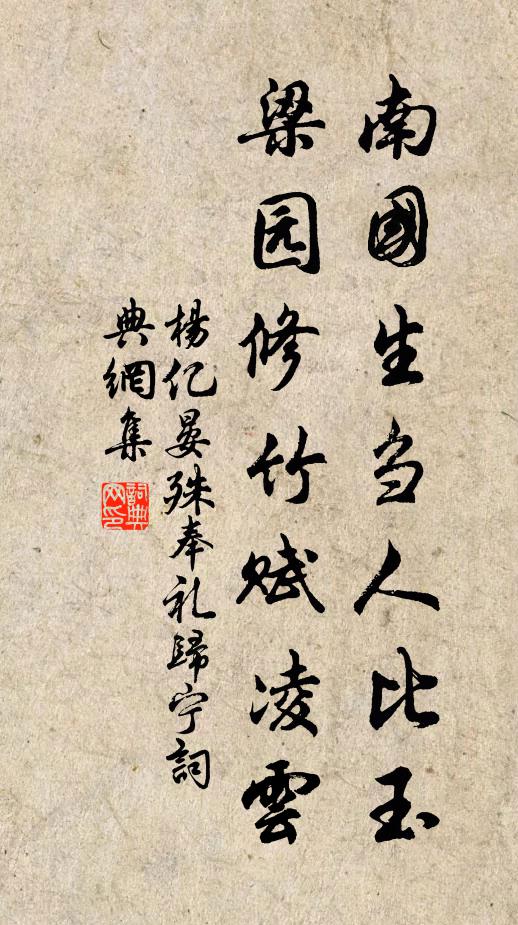 南國生刍人比玉
梁园修竹赋凌雲
楊亿晏殊奉礼歸宁詞
典網集
詞典
网印